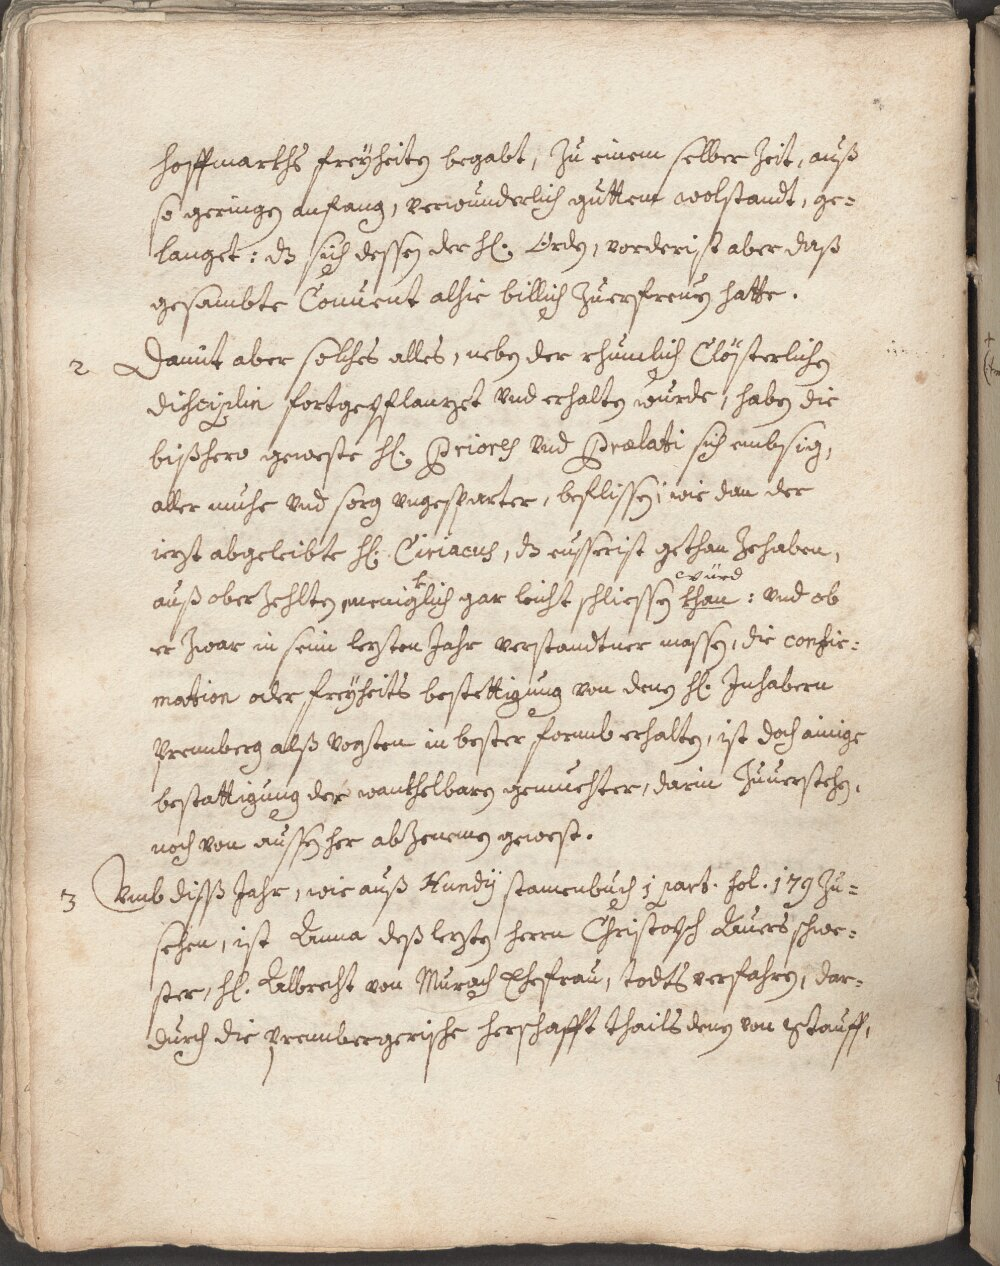 hoffmarkhs freÿheiten begabt, Zu einem selber Zeit, auß
so geringen anfang, verwunderlich guttem wolstandt, ge=
langet: dz sich dessen der hl. Orden, vorderist aber daß
gesambte Conuent alhie billich Zuerfreuen hatte.
2 Damit aber solches alles, neben der rhumlich Clösterlichen
disciplin fortgepflanzet vnd erhalten wurde, haben die
bißhero geweste hl. Priores vnd Prælati sich embsig,
aller muhe vnd sorg vngesparter, beflissen; wie dan der
iezt abgeleibte hl. Ciriacus, dz eusserist gethan Zehaben,
würd
auß ober Zehlten meniglich gar leicht schliessen khan: vnd ob
er Zwar in seim lezten Jahr verstandtner massen, die confir=
mation oder freÿheits bestettigung von denen hl. Inhabern
prennberg alß vogten in bester formb erhalten, ist doch ainige
bestattigung der wankhelbaren gemuehter, darin Zuuerstehen,
noch von aussen her abZenemen gewest.
3 Vmb diß Jahr, wie auß Hundÿ stamenbuch 1 part. fol. 179 Zu=
sehen, ist Anna deß lezten herrn Christoph Auers schwe=
ster, hl. Albrecht von Murach Ehefrau, todts verfahren, dar=
durch die prennbergerische herschafft thails denen von Stauff,